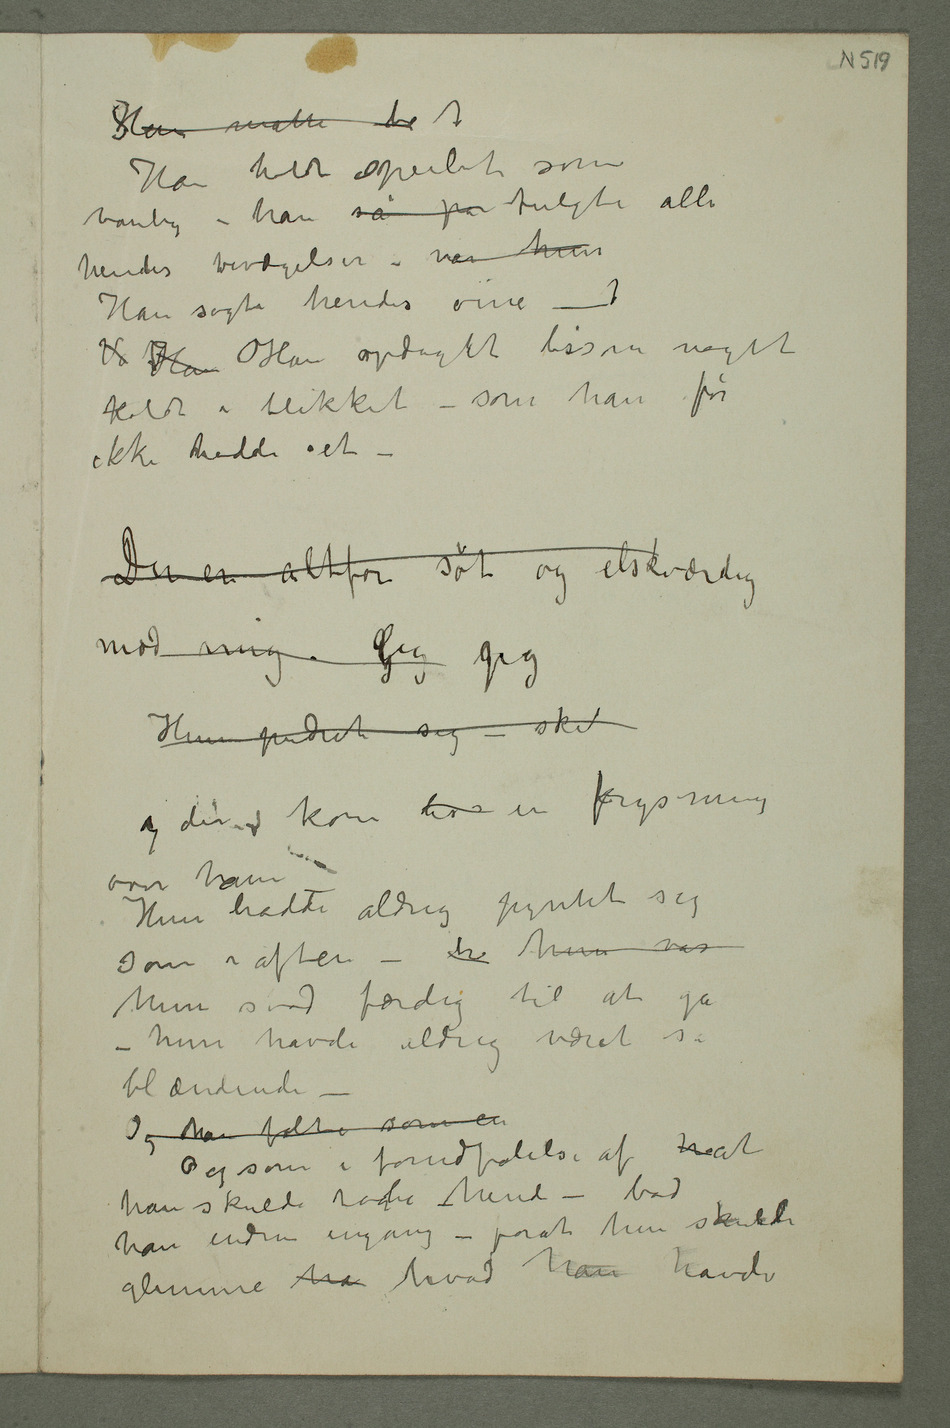 N 519
Han måtte be
Han holdt speilet som
vanlig – han så på fulgte alle
hendes bevægelser – var hun
Han søgte hendes øine –
Han Han opdaget lissom noget
koldt i blikket – som han før
ikke hadde set –
Du er altfor søt og elskværdig
mod mig. Jeg jeg
Hun pudret sig – ske
og der kom en frysning
over ham –
Hun hadde aldrig pyntet sig
som i aften – hun var
Hun stod færdig til at gå
– hun havde aldrig været så
blændende –
Og han følte som en
Og som i forudfølelse af at
han skulde hende – bad
han endnu engang – forat hun skulde
glemme ha hvad han havde